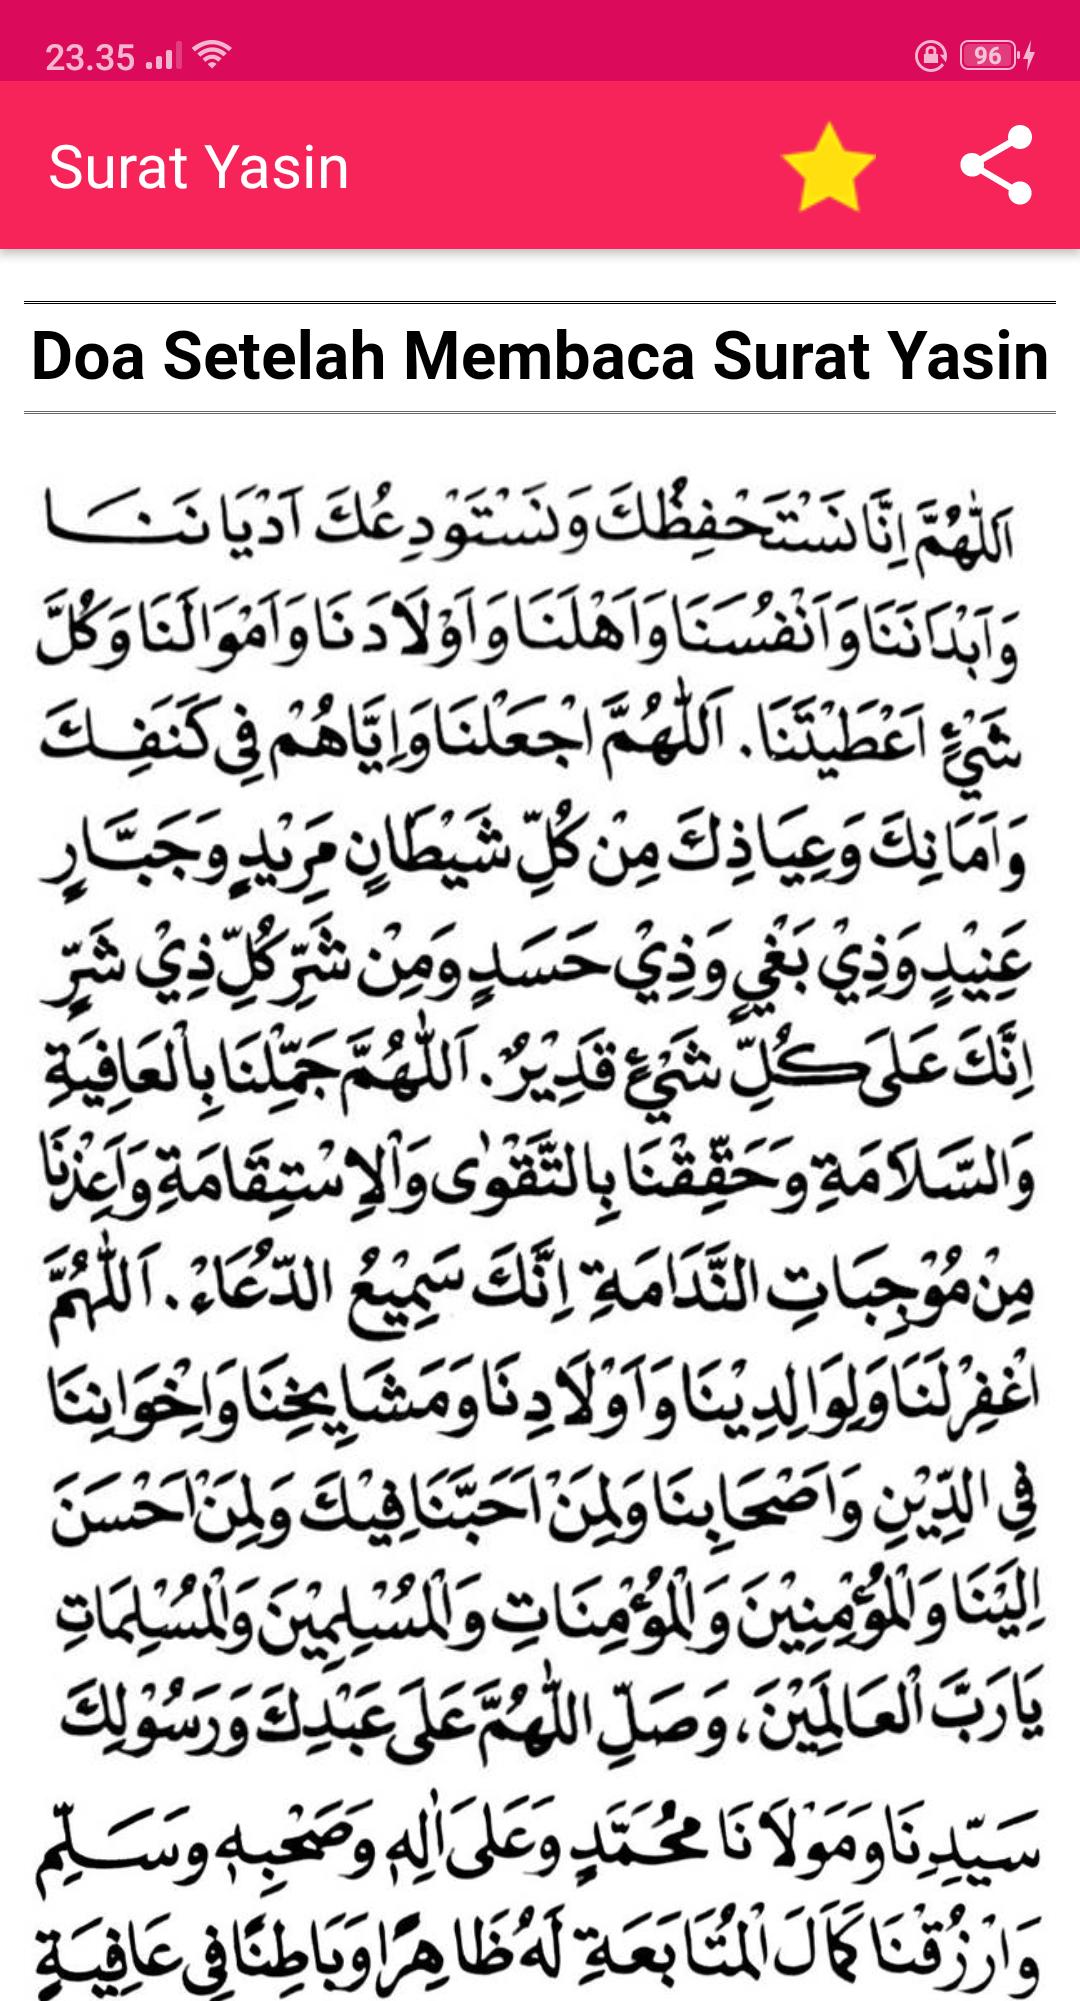 23.35
96
Surat Yasin
Doa Setelah Membaca Surat Yasin
اَللّٰهُمَّ اِنَّا نَسْتَحْفِظُكَ وَنَسْتَوْدِعُكَ اَدْيَانَنَا
وَاَبْدَانَنَا وَاَنْفُسَنَا وَاَهْلَنَا وَاَوْلَادَنَا وَاَمْوَالَنَا وَكُلَّ
شَيْءٍ اَعْطَيْتَنَا. اَللّٰهُمَّ اجْعَلْنَا وَاِيَّاهُمْ فِي كَنَفِكَ
وَاَمَانِكَ وَعِيَاذِكَ مِنْ كُلِّ شَيْطَانٍ مَرِيْدٍ وَجَبَّارٍ
عَنِيْدٍ وَذِيْ بَغْيٍ وَذِيْ حَسَدٍ وَمِنْ شَرِّ كُلِّ ذِيْ شَرٍّ
اِنَّكَ عَلَى كُلِّ شَيْءٍ قَدِيْرٌ. اَللّٰهُمَّ جَمِّلْنَا بِالْعَافِيَةِ
وَالسَّلَامَةِ وَحَقِّقْنَا بِالتَّقْوٰى وَالْاِسْتِقَامَةِ وَاَعِذْنَا
مِنْ مُوْجِبَاتِ النَّدَامَةِ اِنَّكَ سَمِيْعُ الدُّعَاءْ. اَللّٰهُمَّ
اغْفِرْ لَنَا وَلِوَالِدِيْنَا وَاَوْلَادِنَا وَمَشَايِخِنَا وَاِخْوَانِنَا
فِي الدِّيْنِ وَاَصْحَابِنَا وَلِمَنْ اَحَبَّنَا فِيْكَ وَلِمَنْ اَحْسَنَ
اِلَيْنَا وَالْمُؤْمِنِيْنَ وَالْمُؤْمِنَاتِ وَالْمُسْلِمِيْنَ وَالْمُسْلِمَاتِ
يَارَبَّ الْعَالَمِيْنَ، وَصَلِّ اللّٰهُمَّ عَلَى عَبْدِكَ وَرَسُوْلِكَ
سَيِّدِنَا وَمَوْلَانَا مُحَمَّدٍ وَعَلَى اٰلِهِ وَصَحْبِهِ وَسَلِّمْ
وَارْزُقْنَا كَمَالَ الْمُتَابَعَةِ لَهُ ظَاهِرًا وَبَاطِنًا فِي عَافِيَةٍ